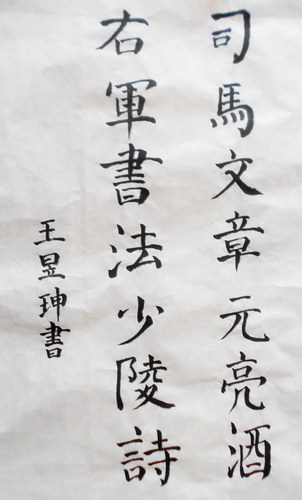 司馬文章元亮酒
右軍書法少陵詩
王昱珅書